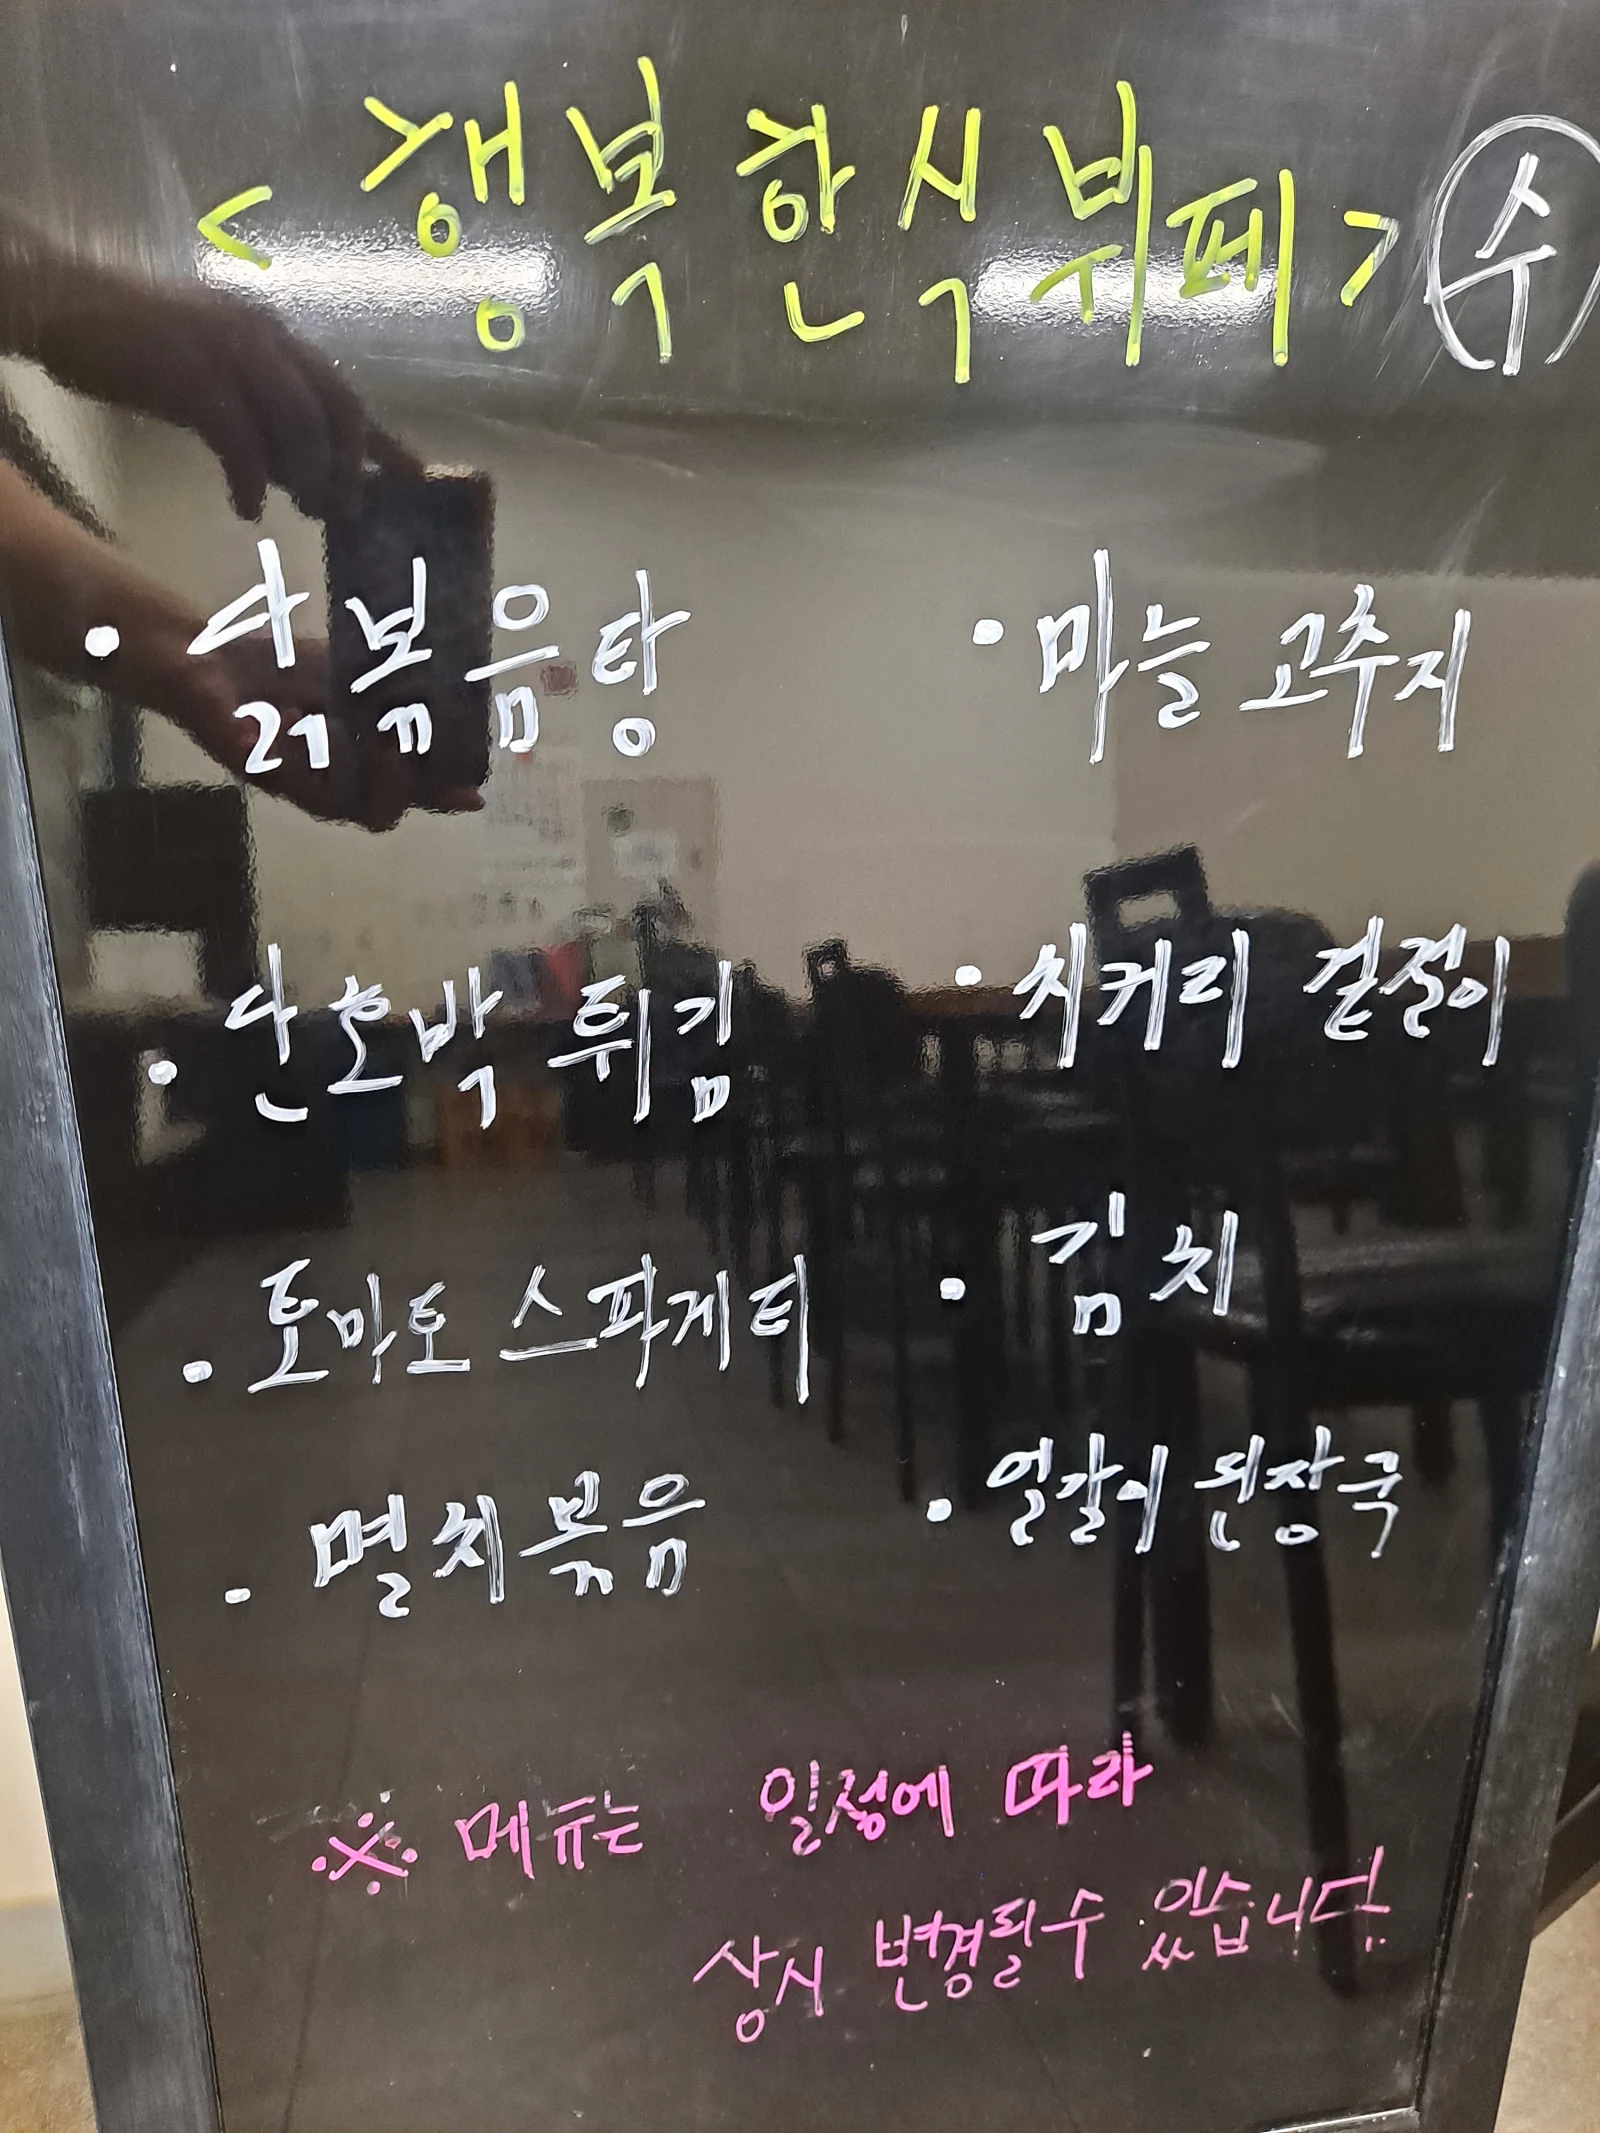 < 행복한식뷔페 > 수
· 닭볶음탕
· 단호박 튀김
· 토마토 스파게티
· 멸치볶음
· 마늘 고추지
· 치커리 겉절이
· 김치
· 얼갈이 된장국
※ 메뉴는 일정에 따라
상시 변경될수 있습니다.